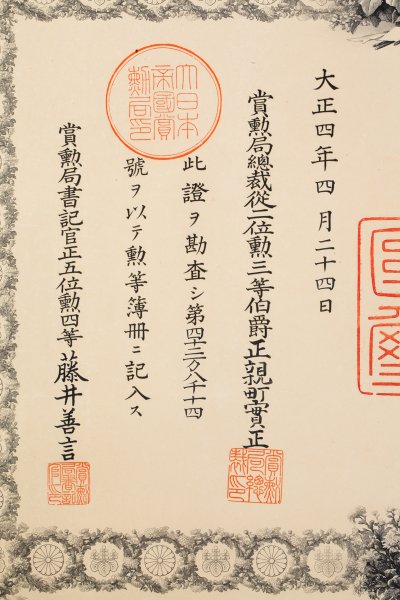 大正四年四月二十四日
賞勲局總裁從二位勲三等伯爵正親町實正
此證ヲ勘査シ第四十三万八千十四
號ヲ以テ勲等簿冊ニ記入ス
賞勲局書記官正五位勲四等藤井善言
大日本
帝國賞
勲局印
賞勲
局總
裁印